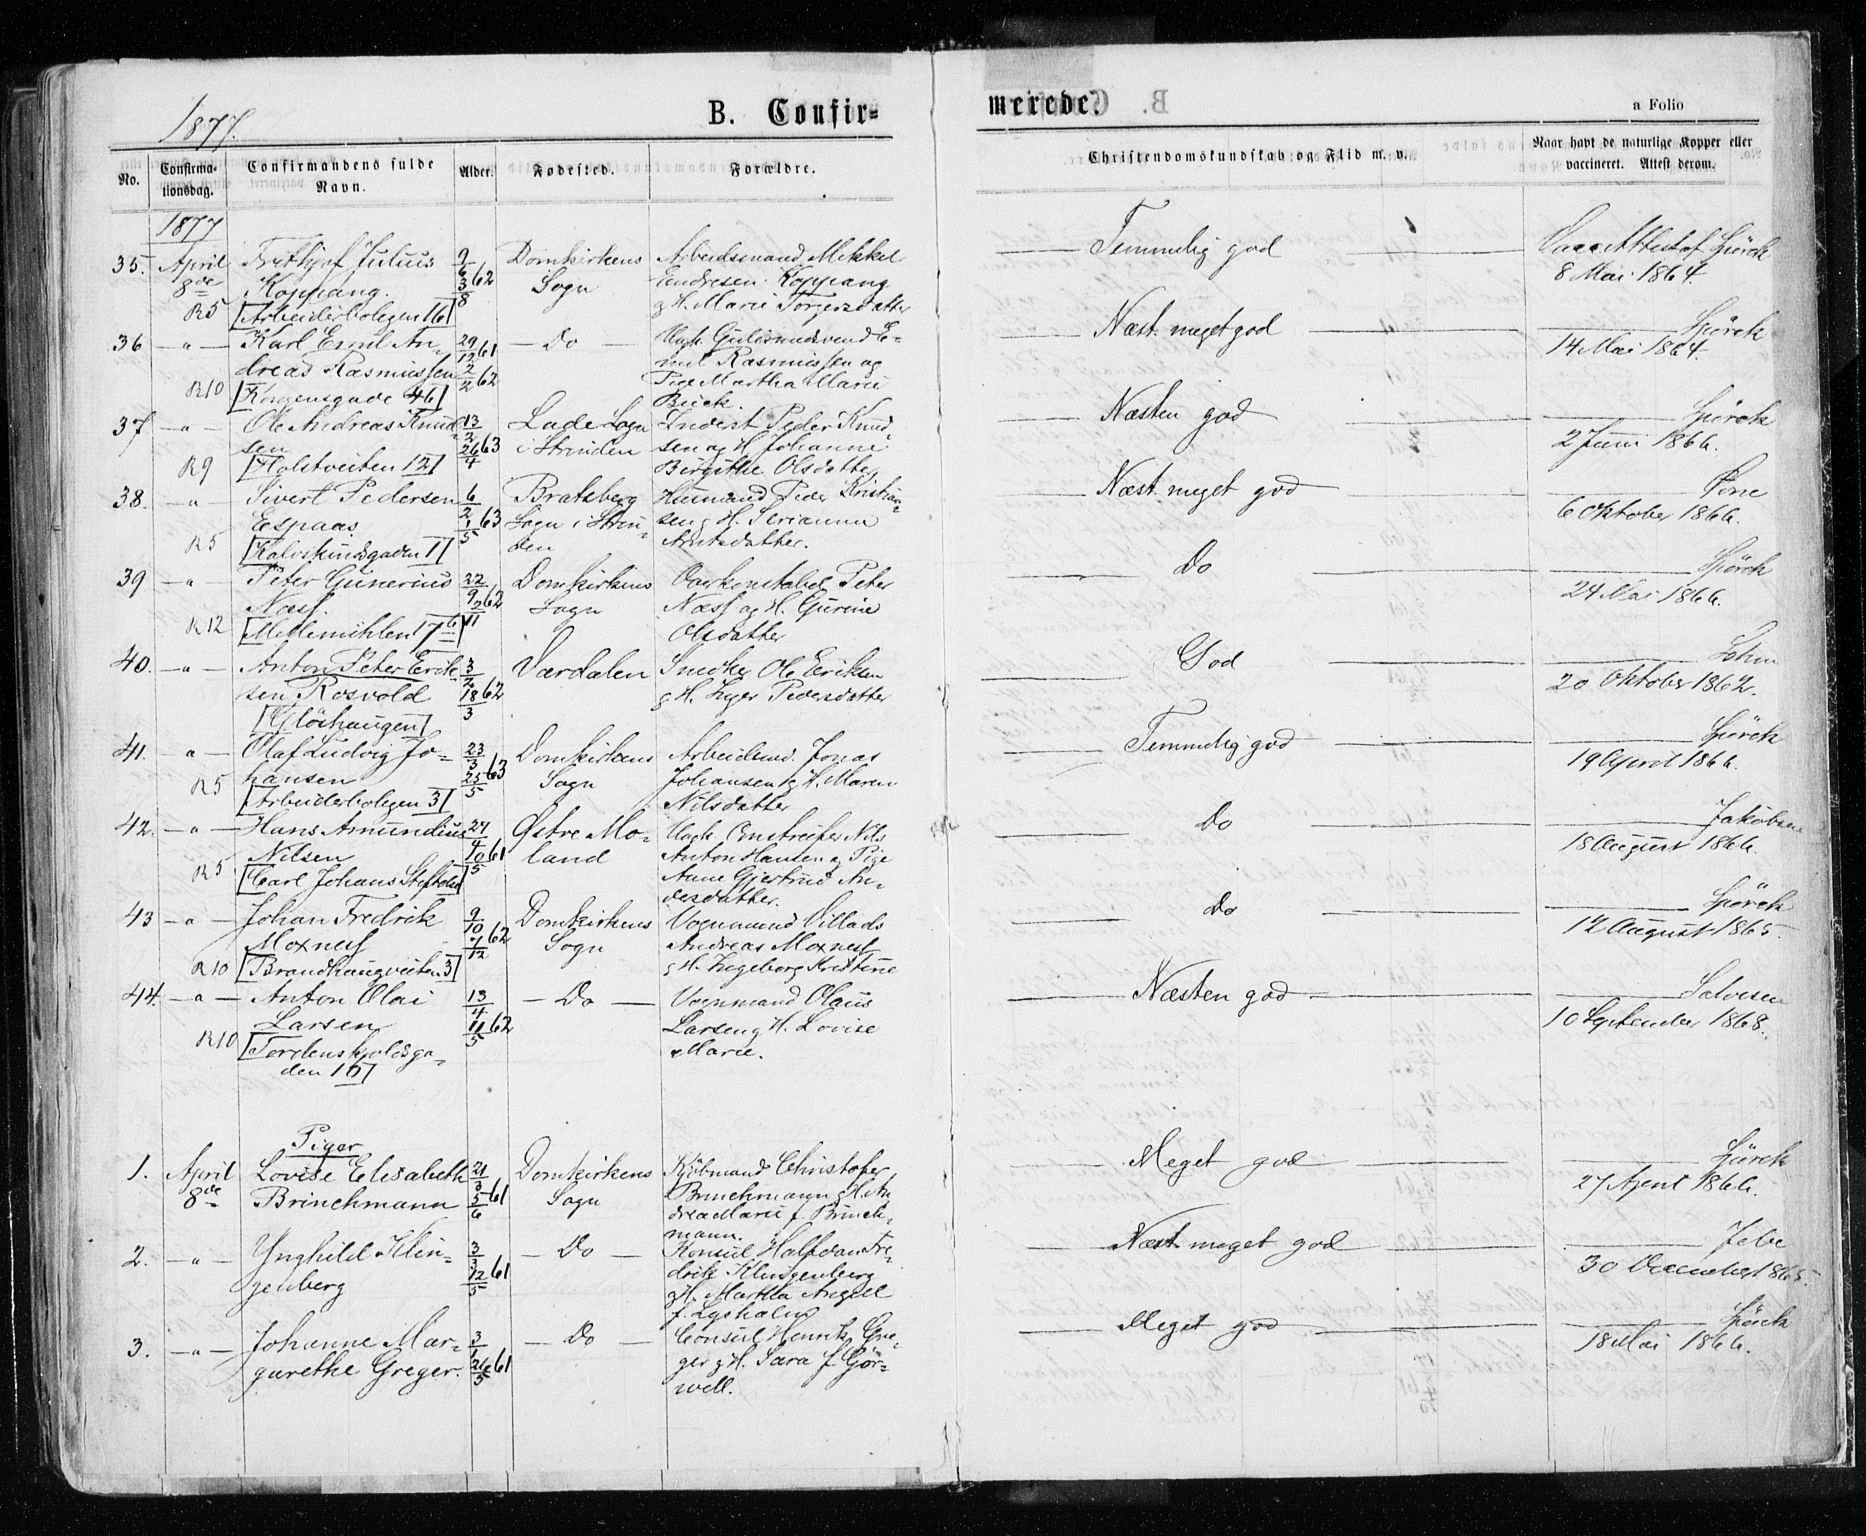 1877.
B. Confirmerede.
a Folio
No.
Confirmationsdag.
Confirmandens fulde Navn.
Alder.
Fødested.
Forældre.
Christendomskundskab og Flid m. v.
Naar havt de naturlige Kopper eller vaccineret. Attest derom.
1877
35. April Frithjof Julius 2/6 62 Domkirkens Arbeidsmand Mikkel Temmelig god Vacc Attest af Spörck
8de Koppang. 3/8 Sogn Endresen Koppang 8 Mai 1864.
R5 [Arbeiderboligen 16] g H. Marie Torgersdatter
36 — " — Karl Emil An- 29/12 61 — Do — Uægte Guldsmedsvend E- Næst meget god Spörck
dreas Rasmussen 2/2 62 mil Rasmussen og 14 Mai 1864.
R10 [Kongensgade 46] Pige Martha Marie
Beick.
37 — " — Ole Andreas Knud- 13/2 Lade Sogn Indest Peder Knud- Næsten god Spörck
sen 26/4 63 i Strinden sen og H. Johanne 2 Juni 1866.
R9 [Holstveiten 12] Birgithe Olsdatter
38. — " — Sivert Pedersen 6/2 Bratsberg Husmand Peder Kristian- Næst meget god
Espaas 1/5 63 Sogn i Strin- sen g H. Serianna 6 Oktober 1866.
R5 [Kalvskindsgaden 1] den Arntsdatter.
39 — " — Peter Gunerius 22/9 Domkirkens Overkonstabel Peter Do Spörck
Næss. 2/11 62 Sogn Næss og H. Gurine 24 Mai 1866.
R12 [Mellemiihlen 17 b] Olsdatter
40. — " — Anton Peter Erik- 3/2 Værdalen Snedker Ole Eriksen God Lohm
sen Rosvold 18/3 62 g H. Inger Pedersdatter 20 Oktober 1862.
[Glöshaugen]
41. " — Olaf Ludvig Jo- 23/3 Domkirkens Arbeidsmd. Jonas Temmelig god Spörck
hansen 25/5 63 Sogn Johansen g H. Maren 19 April 1866.
R5 [Arbeiderboligen 3] Nilsdatter
42. — " — Hans Amundius 27/4 Østre Mo- Uægte Nils Do Jakobsen
Nilsen 10/5 61 land Anton Hansen og Pige 18 August 1866.
R5 [Carl Johans Stiftelse] Anne Gjertrud An-
dersdatter.
43 — " — Johan Fredrik 9/10 Domkirkens Vognmand Villads Do Spörck
Moxness 7/12 62 Sogn Andreas Moxness 12 August 1865.
R10 [Brandhaugveiten 3] g H. Ingeborg Kristine
44. — " — Anton Olai 13/4 — Do — Vognmand Olaus Næsten god Salvesen
Larsen 11/5 62 Larsen g H. Lovise 10 September 1868.
R10 [Tordenskjoldsga- Marie.
den 16]
Piger
1. April Lovise Elisabeth 21/3 Domkirkens Kjöbmand Christofer Meget god Spörck
8de Brinchmann 5/6 61 Sogn Brinchmann g H. An 27 April 1866.
drea Marie f. Brinch-
mann.
2. — " — Ynghild Klin- 3/3 — Do — Konsul Halfdan Fre- Næst meget god Jebe
genberg 12/5 61 drik Klingenberg 30 December 1865.
g H. Martha Angell
f. Lysholm
3. — " — Johanne Mar- 3/1 — Do — Consul Henrik Gre- Meget god Spörck
garethe Greger. 26/5 61 ger g H. Sara f. Gör- 18 Mai 1866.
well.